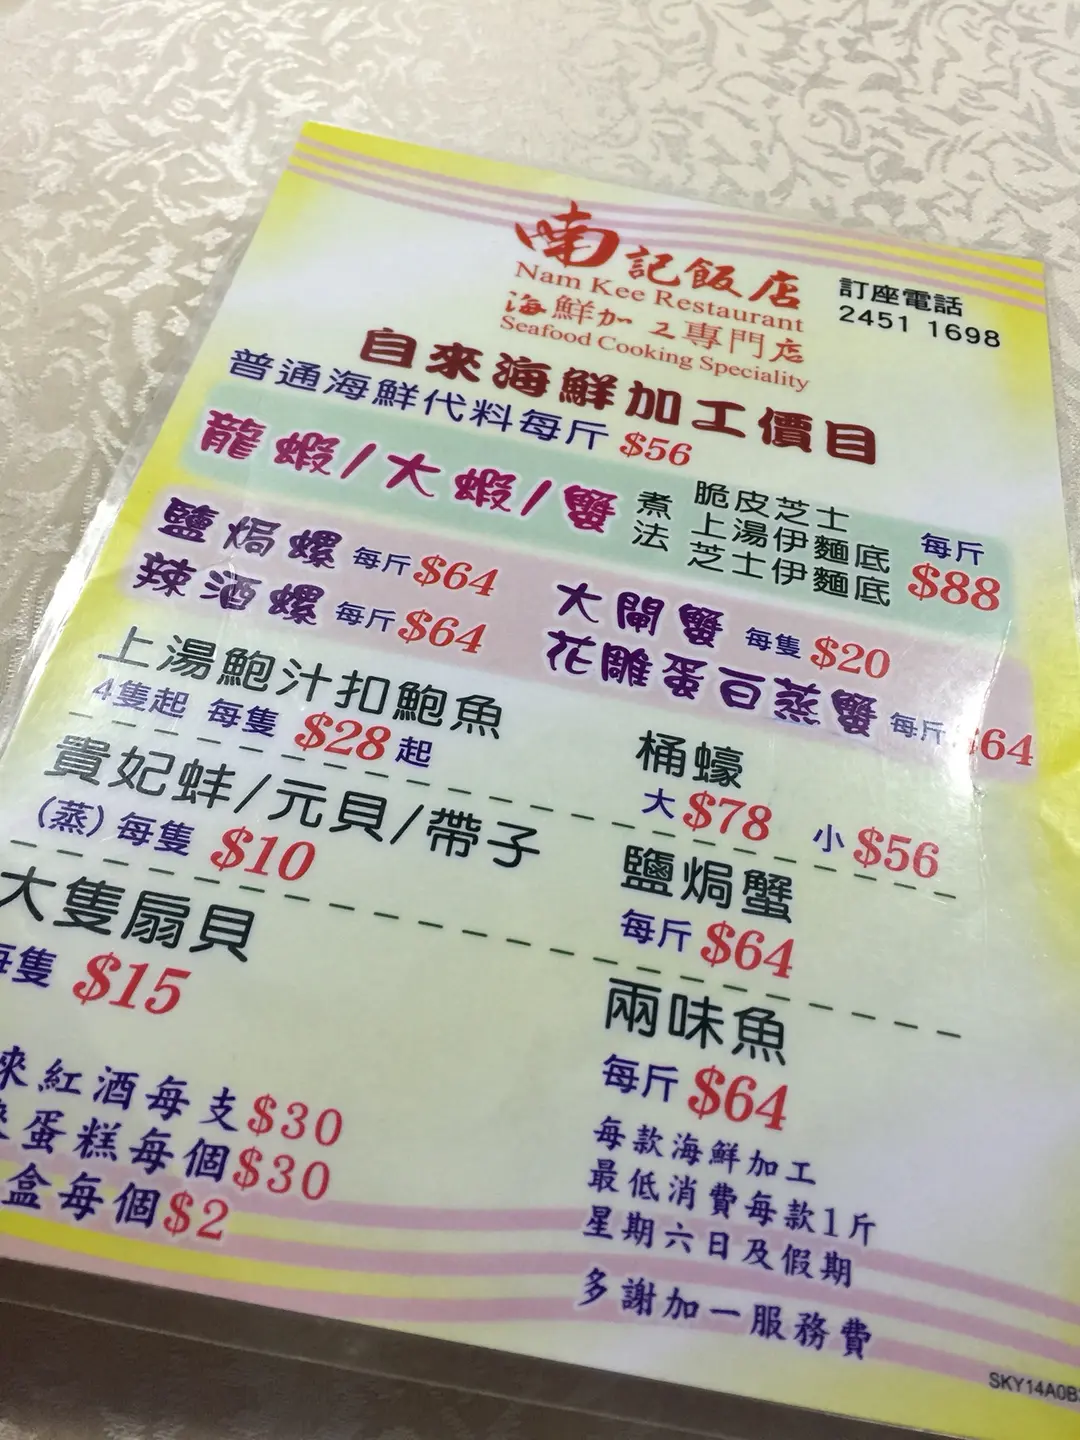 南記飯店
Nam Kee Restaurant
海鮮加工專門店
Seafood Cooking Speciality
訂座電話
2451 1698
自來海鮮加工價目
普通海鮮代料每斤 $56
龍蝦/大蝦/蟹 煮法
脆皮芝士
上湯伊麵底
芝士伊麵底
每斤 $88
鹽焗螺 每斤 $64
辣酒螺 每斤 $64
大閘蟹 每隻 $20
花雕蛋白蒸蟹 每斤 $64
上湯鮑汁扣鮑魚
4隻起 每隻 $28 起
桶蠔
大 $78 小 $56
貴妃蚌/元貝/帶子
(蒸) 每隻 $10
鹽焗蟹
每斤 $64
大隻扇貝
每隻 $15
兩味魚
每斤 $64
來紅酒每支$30
蛋糕每個$30
盒每個$2
每款海鮮加工
最低消費每款1斤
星期六日及假期
多謝加一服務費
SKY14A0B